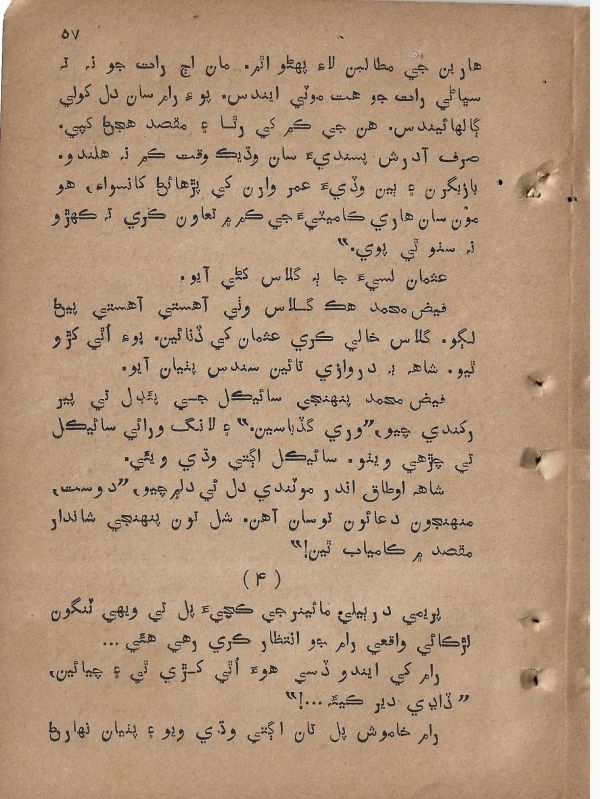 ٥٧
هارين جي مطالبن لاءِ پهتو آهيم. مان اڄ رات جو نہ تہ
سڀاڻي رات جو هت موٽي ايندس. پوءِ رام سان دل کولي
ڳالهائيندس. هن جي ڪم کي رٿا ۽ مقصد هجڻ کپي.
صرف آدرش پسنديءَ سان وڌيڪ وقت ڪم نہ هلندو.
بازيگرن ۽ ٻين وڏيءَ عمر وارن کي پڙهائڻ کانسواءِ، هو
مون سان هاري ڪاميٽيءَ جي ڪم ۾ تعاون ڪري تہ ڪهڙو
نہ سٺو ٿي پوي.“
عثمان لسيءَ جا ٻہ گلاس کڻي آيو.
فيض محمد هڪ گلاس وٺي آهستي آهستي پيئڻ
لڳو. گلاس خالي ڪري عثمان کي ڏنائين. پوءِ اُٿي کڙو
ٿيو. شاهہ بہ دروازي تائين سندس پٺيان آيو.
فيض محمد پنهنجي سائيڪل جي پئڊل تي پير
رکندي چيو، ”وري گڏباسين.“ ۽ لانگ ورائي سائيڪل
تي چڙهي ويٺو. سائيڪل اڳتي وڌي ويئي.
شاهہ اوطاق اندر موٽندي دل ئي دل ۾ چيو، ”دوست،
منهنجون دعائون توسان آهن. شل تون پنهنجي شاندار
مقصد ۾ ڪامياب ٿين!“
(۴)
پريمي درٻيلي مائينر جي ڪچيءَ پل تي ويهي ٽنگون
لڙڪائي واقعي رام جو انتظار ڪري رهي هئي...
رام کي ايندو ڏسي هوءَ اُٿي کڙي ٿي ۽ چيائين،
”ڏاڍي دير ڪيئہ...!“
رام خاموش پل تان اڳتي وڌي ويو ۽ پٺيان نهارڻ